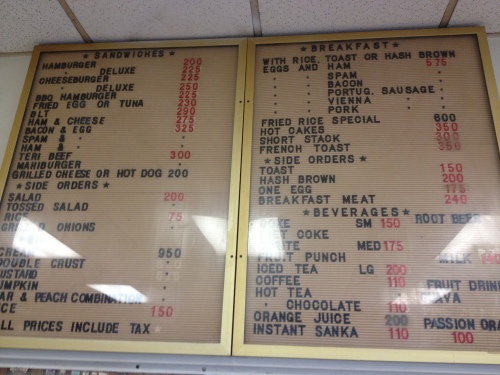 ★ SANDWICHES ★
HAMBURGER 200
" DELUXE 225
CHEESEBURGER 225
" DELUXE 250
BBQ HAMBURGER 225
FRIED EGG OR TUNA 230
BLT 290
HAM & CHEESE 275
BACON & EGG 325
SPAM & "
HAM & "
TERI BEEF 300
MAHIBURGER "
GRILLED CHEESE OR HOT DOG 200
★ SIDE ORDERS ★
SALAD 200
TOSSED SALAD "
RICE 75
ONIONS
950
DOUBLE CRUST "
USTARD "
UMPKIN "
AR & PEACH COMBINATION
ICE 150
LL PRICES INCLUDE TAX ★
★ BREAKFAST ★
WITH RICE, TOAST OR HASH BROWN
EGGS AND HAM 575
" " SPAM "
" " BACON "
" " PORTUG. SAUSAGE "
" " VIENNA "
" " PORK "
FRIED RICE SPECIAL 600
HOT CAKES 350
SHORT STACK 300
FRENCH TOAST 350
★ SIDE ORDERS ★
TOAST 150
HASH BROWN 200
ONE EGG 175
BREAKFAST MEAT 240
★ BEVERAGES ★
COKE SM 150 ROOT BEER
COKE
MED 175
FRUIT PUNCH MILK 140
ICED TEA LG 200
COFFEE 110 FRUIT DRIN
HOT TEA " AVA
" CHOCOLATE 110
ORANGE JUICE 200 PASSION ORA
INSTANT SANKA 110 100